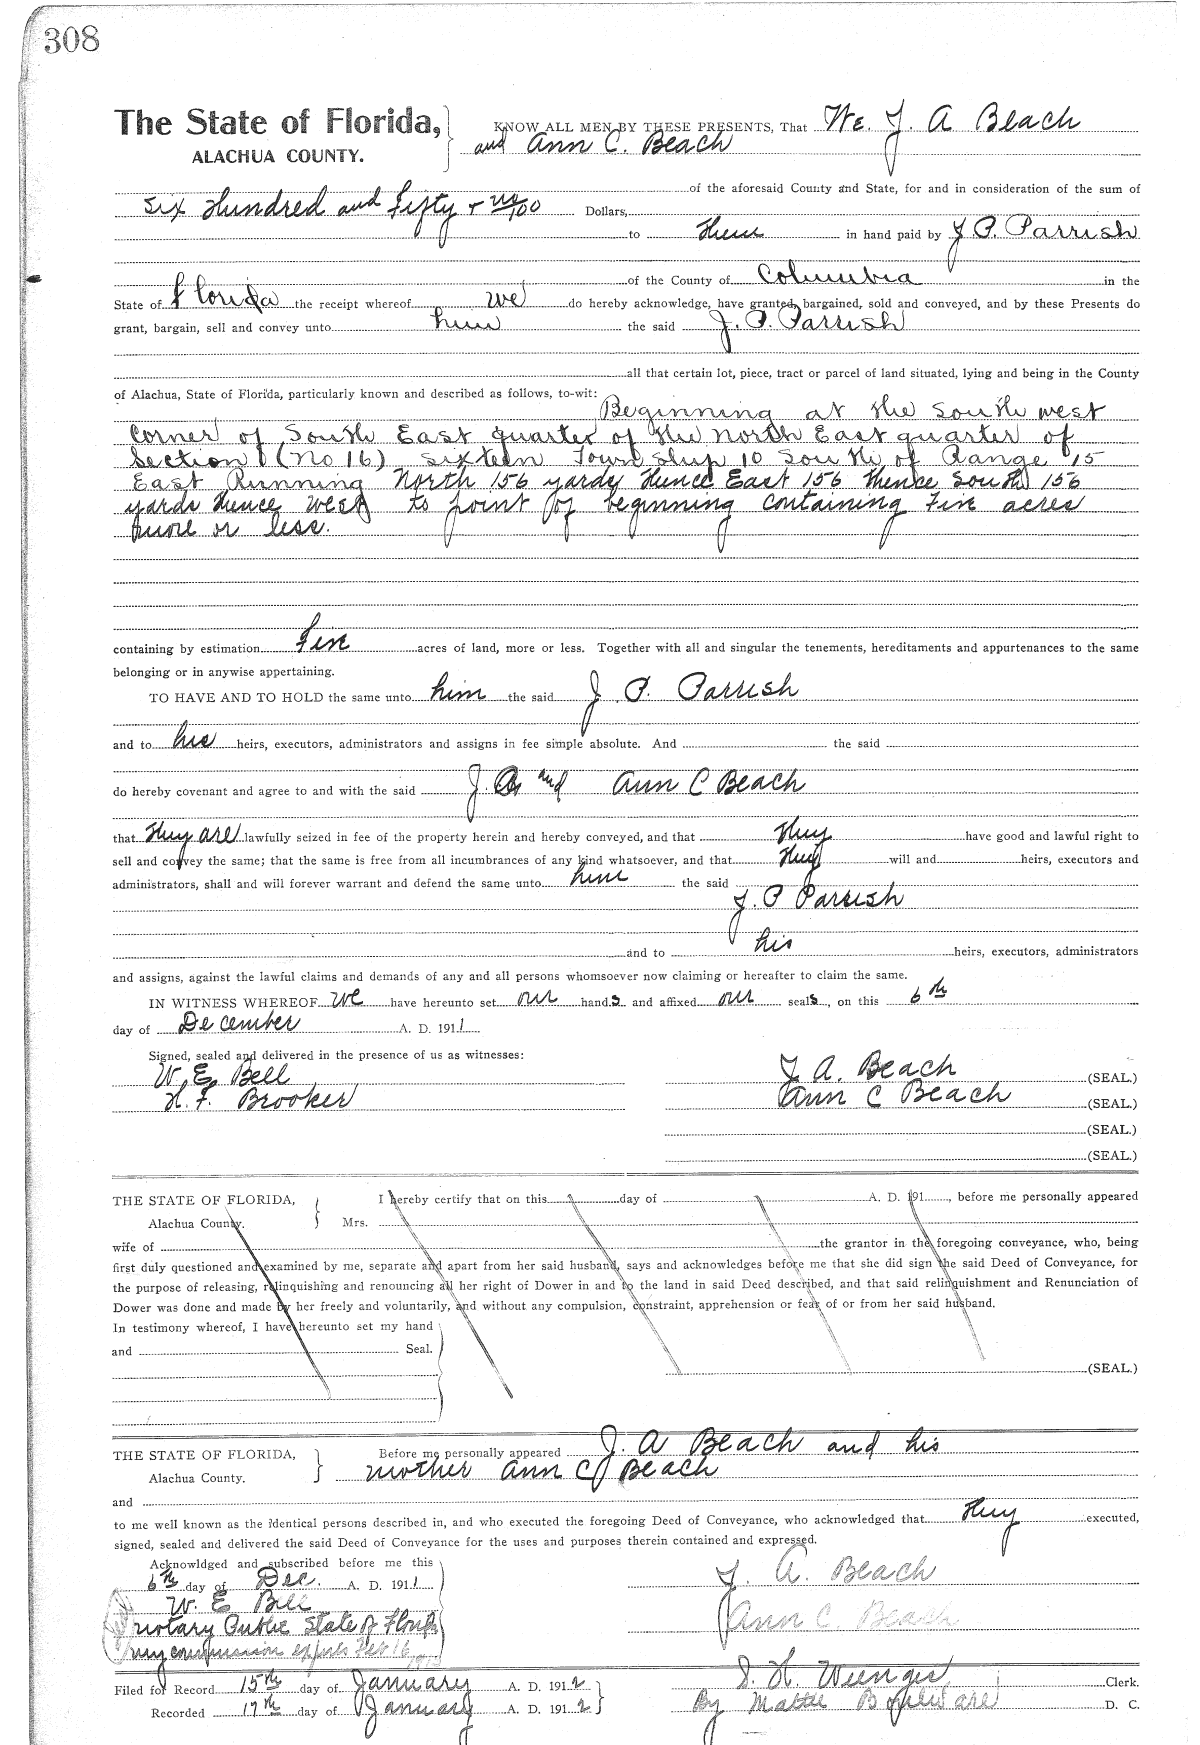 308
The State of Florida,
KNOW ALL MEN BY THESE PRESENTS, That We. J. A Beach
ALACHUA COUNTY.
and Ann C. Beach
of the aforesaid County and State, for and in consideration of the sum of
Six Hundred and Fifty + no/100 Dollars,
to them in hand paid by J P. Parrish
of the County of Columbia in the
State of Florida the receipt whereof we do hereby acknowledge, have granted, bargained, sold and conveyed, and by these Presents do
grant, bargain, sell and convey unto him the said J. P. Parrish
all that certain lot, piece, tract or parcel of land situated, lying and being in the County
of Alachua, State of Florida, particularly known and described as follows, to-wit:
Beginning at the South west
corner of South East quarter of the North East quarter of
Section (No 16) Sixteen Town Ship 10 South of Range 15
East Running North 156 yards thence East 156 thence South 156
yards thence west to point of beginning containing Five acres
more or less.
containing by estimation Five acres of land, more or less. Together with all and singular the tenements, hereditaments and appurtenances to the same
belonging or in anywise appertaining.
TO HAVE AND TO HOLD the same unto him the said J. P. Parrish
and to his heirs, executors, administrators and assigns in fee simple absolute. And the said
do hereby covenant and agree to and with the said J. A and Ann C Beach
that they are lawfully seized in fee of the property herein and hereby conveyed, and that they have good and lawful right to
sell and convey the same; that the same is free from all incumbrances of any kind whatsoever, and that they will and heirs, executors and
administrators, shall and will forever warrant and defend the same unto him the said
J. P Parrish
and to his heirs, executors, administrators
and assigns, against the lawful claims and demands of any and all persons whomsoever now claiming or hereafter to claim the same.
IN WITNESS WHEREOF we have hereunto set our hands and affixed our seals, on this 6th
day of December A. D. 1911
Signed, sealed and delivered in the presence of us as witnesses:
W. E. Bell J A. Beach (SEAL.)
H. F. Brooker Ann C Beach (SEAL.)
(SEAL.)
(SEAL.)
THE STATE OF FLORIDA, I hereby certify that on this day of A. D. 191 , before me personally appeared
Alachua County. Mrs.
wife of the grantor in the foregoing conveyance, who, being
first duly questioned and examined by me, separate and apart from her said husband, says and acknowledges before me that she did sign the said Deed of Conveyance, for
the purpose of releasing, relinquishing and renouncing all her right of Dower in and to the land in said Deed described, and that said relinquishment and Renunciation of
Dower was done and made by her freely and voluntarily, and without any compulsion, constraint, apprehension or fear of or from her said husband.
In testimony whereof, I have hereunto set my hand
and Seal.
(SEAL.)
THE STATE OF FLORIDA, Before me personally appeared J. A Beach and his
Alachua County. mother Ann C Beach
and
to me well known as the identical persons described in, and who executed the foregoing Deed of Conveyance, who acknowledged that they executed,
signed, sealed and delivered the said Deed of Conveyance for the uses and purposes therein contained and expressed.
Acknowldged and subscribed before me this
6th day of Dec. A. D. 1911 J. A. Beach
W. E Bell
Notary Public State of Florida Ann C. Beach
my commission expires Feb 16
Filed for Record 15th day of January A. D. 1912 S. H. Wienges Clerk.
Recorded 17th day of January A. D. 1912 By Mattie Boulware D. C.